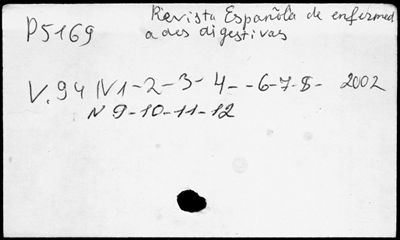 P5169 Revista Española de enfermed
ades digestivas
V.94 N1-2-3-4--6-7-8- 2002
N 9-10-11-12